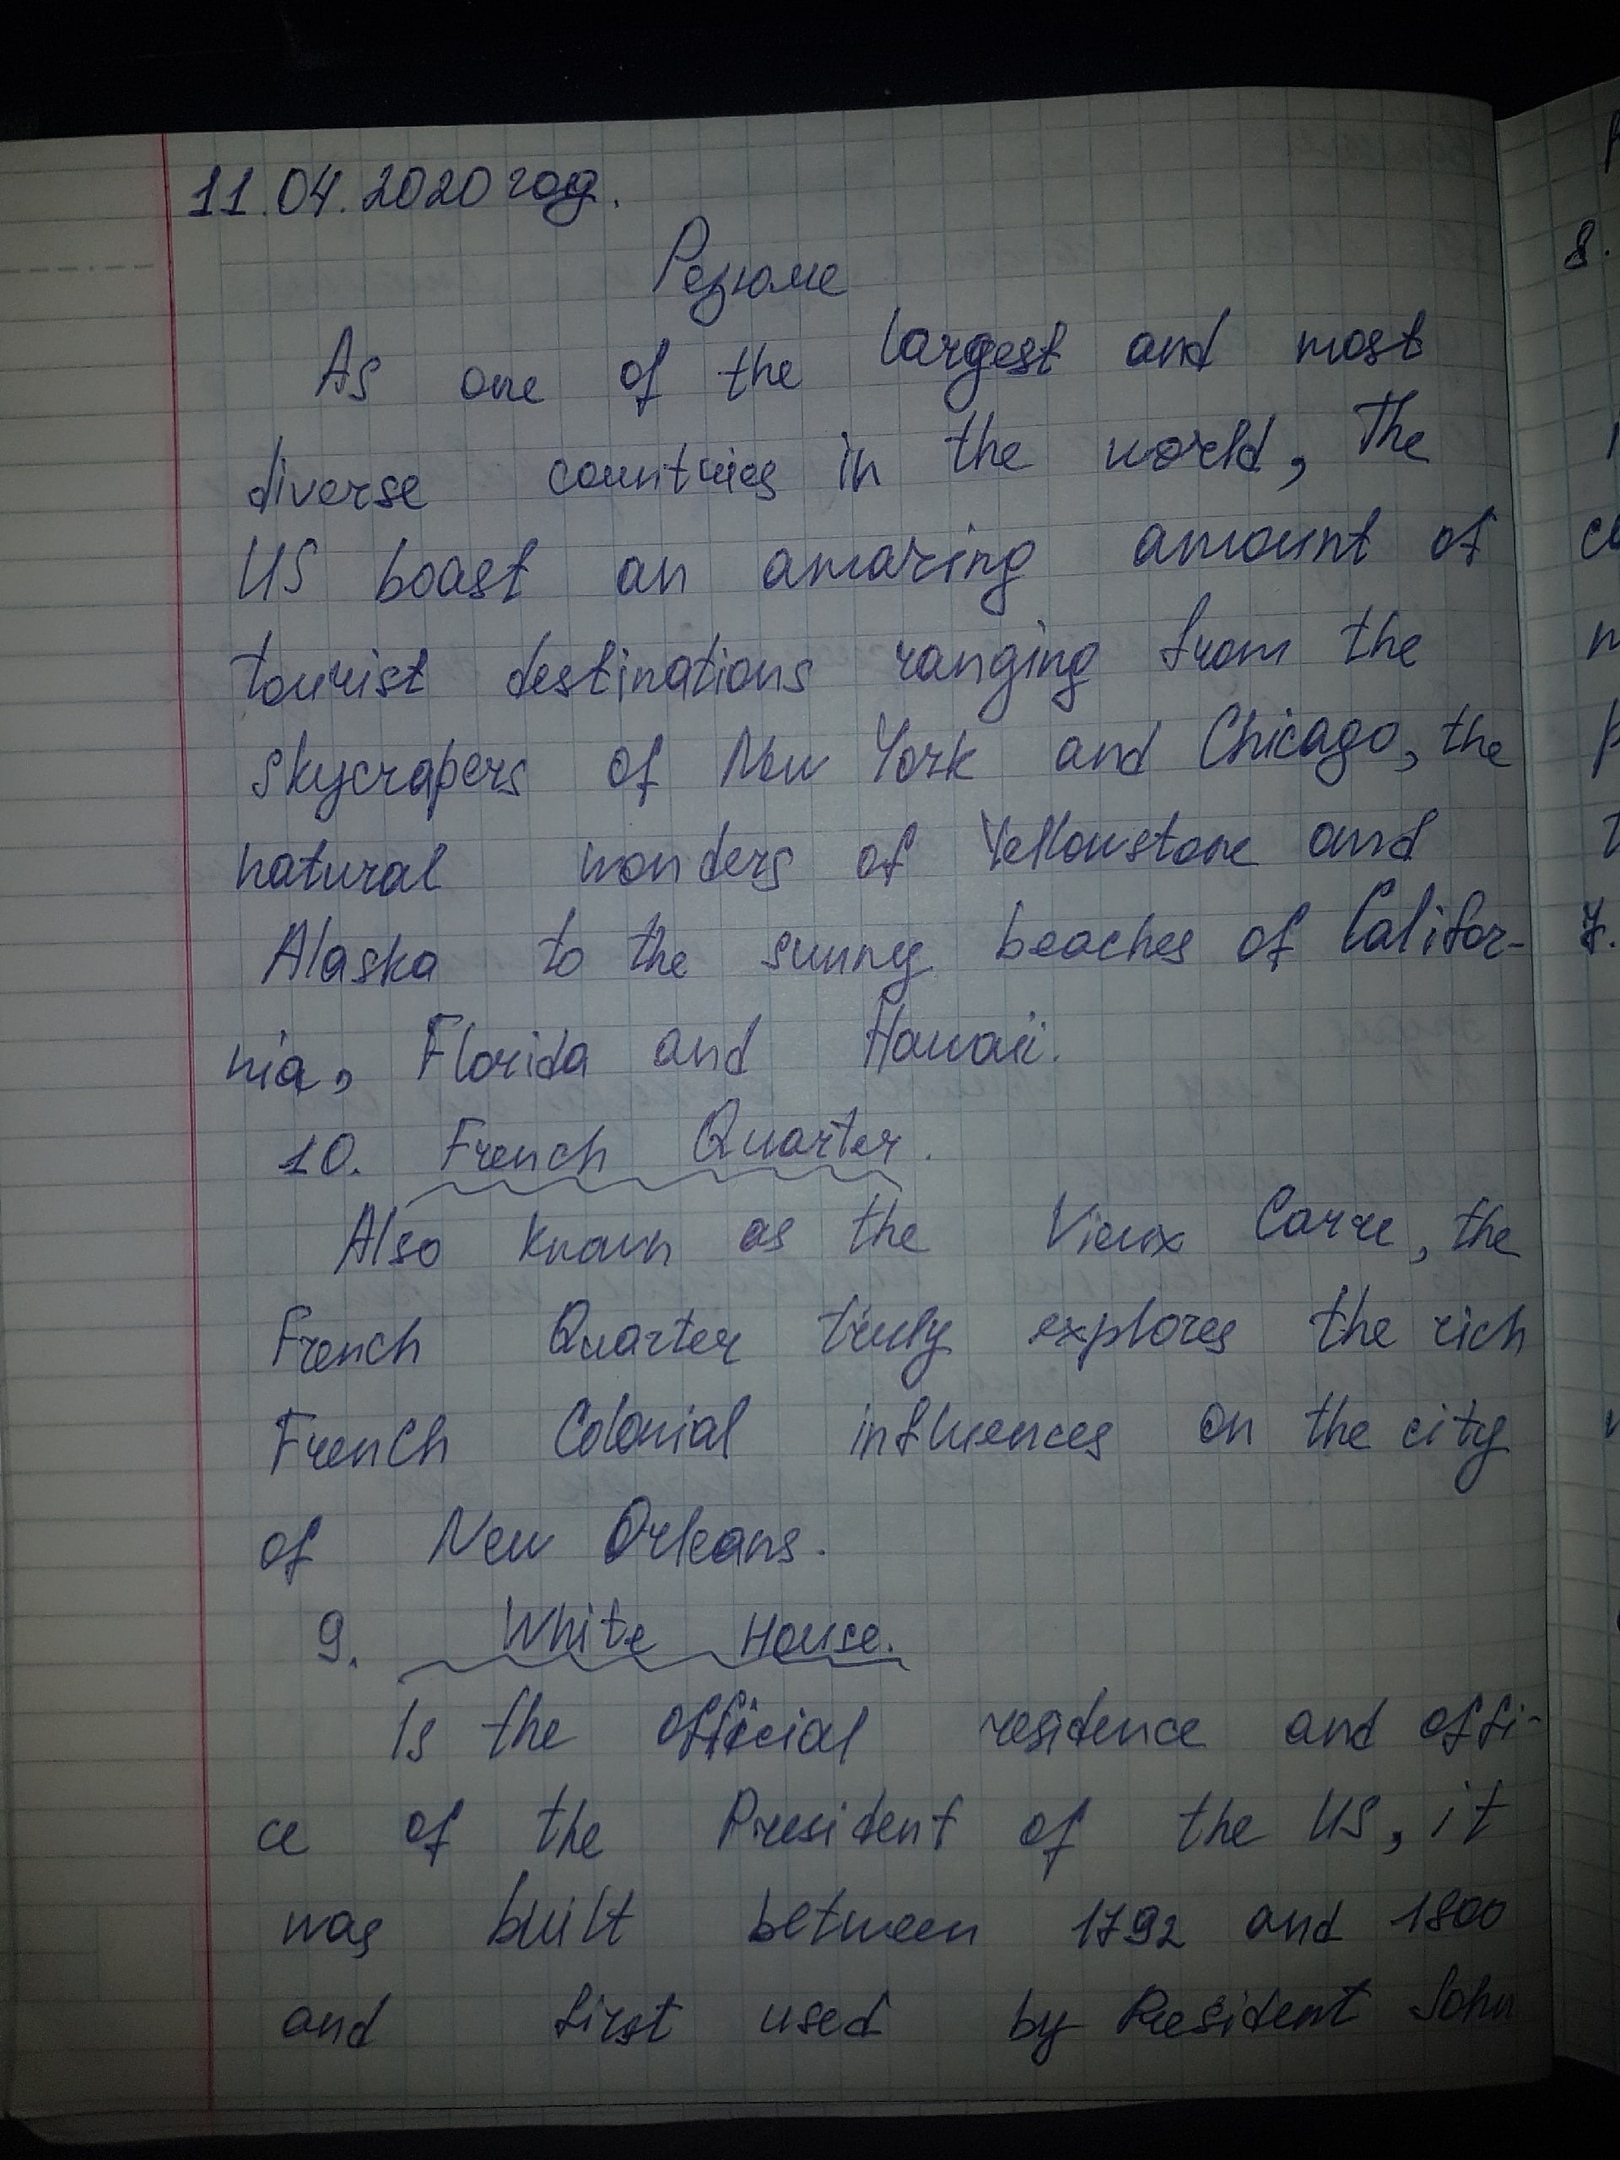 11.04.2020 год.
Резюме
As one of the largest and most
diverse countries in the world, The
US boast an amazing amount of
tourist destinations ranging from the
skycrapers of New York and Chicago, the
natural wonders of Yellowstone and
Alaska to the sunny beaches of Califor-
nia, Florida and Hawaii.
10. French Quarter.
Also known as the Vieux Carre, the
French Quarter truly explores the rich
French Colonial influences on the city
of New Orleans.
9. White House.
Is the official residence and offi-
ce of the President of the US, it
was built between 1792 and 1800
and first used by President John
8.
7.